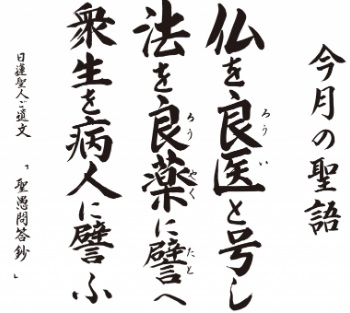 今月の聖語
仏を良医と号し
法を良薬に譬へ
衆生を病人に譬ふ
日蓮聖人ご遺文
『聖愚問答鈔』